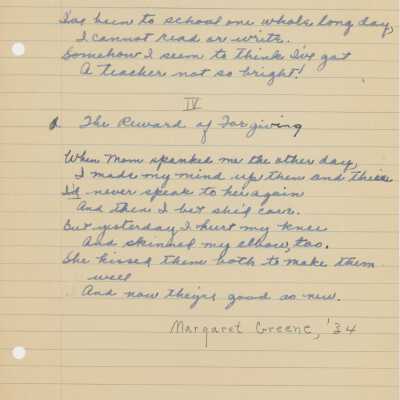 I've been to school one whole long day,
I cannot read or write.
Somehow I seem to think I've got
A teacher not so bright!
IV
The Reward of Forgiving
When Mom spanked me the other day,
I made my mind up then and there
I'd never speak to her again
And then I bet she'd care.
But yesterday I hurt my knee
And skinned my elbow, too.
She kissed them both to make them
well
And now they're good as new.
Margaret Greene, '34